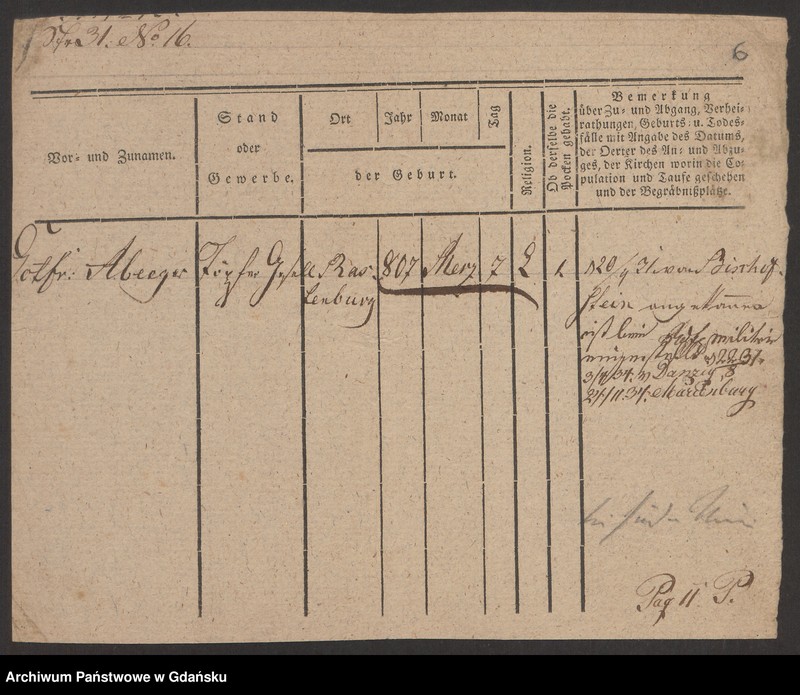 31. No 16.
6
Vor- und Zunamen.
Stand
oder
Gewerbe.
Ort
Jahr
Monat
Tag
der Geburt.
Religion.
Ob derselbe die
Pocken gehabt.
Bemerkung
über Zu- und Abgang, Verhei-
rathungen, Geburts- u. Todes-
fälle mit Angabe des Datums,
der Oerter des An- und Abzu-
ges, der Kirchen worin die Co-
pulation und Taufe geschehen
und der Begräbnißplätze.
Gotfr: Abeeger
Töpfer Gesell
Ras-
tenburg
807
Merz
7
L
1.
20/4 31. von Bischof-
stein angekommen
ist beim militär
3/4 34. v Danzig
24/11. 34. Marienburg
Pag 11 P.
Archiwum Państwowe w Gdańsku